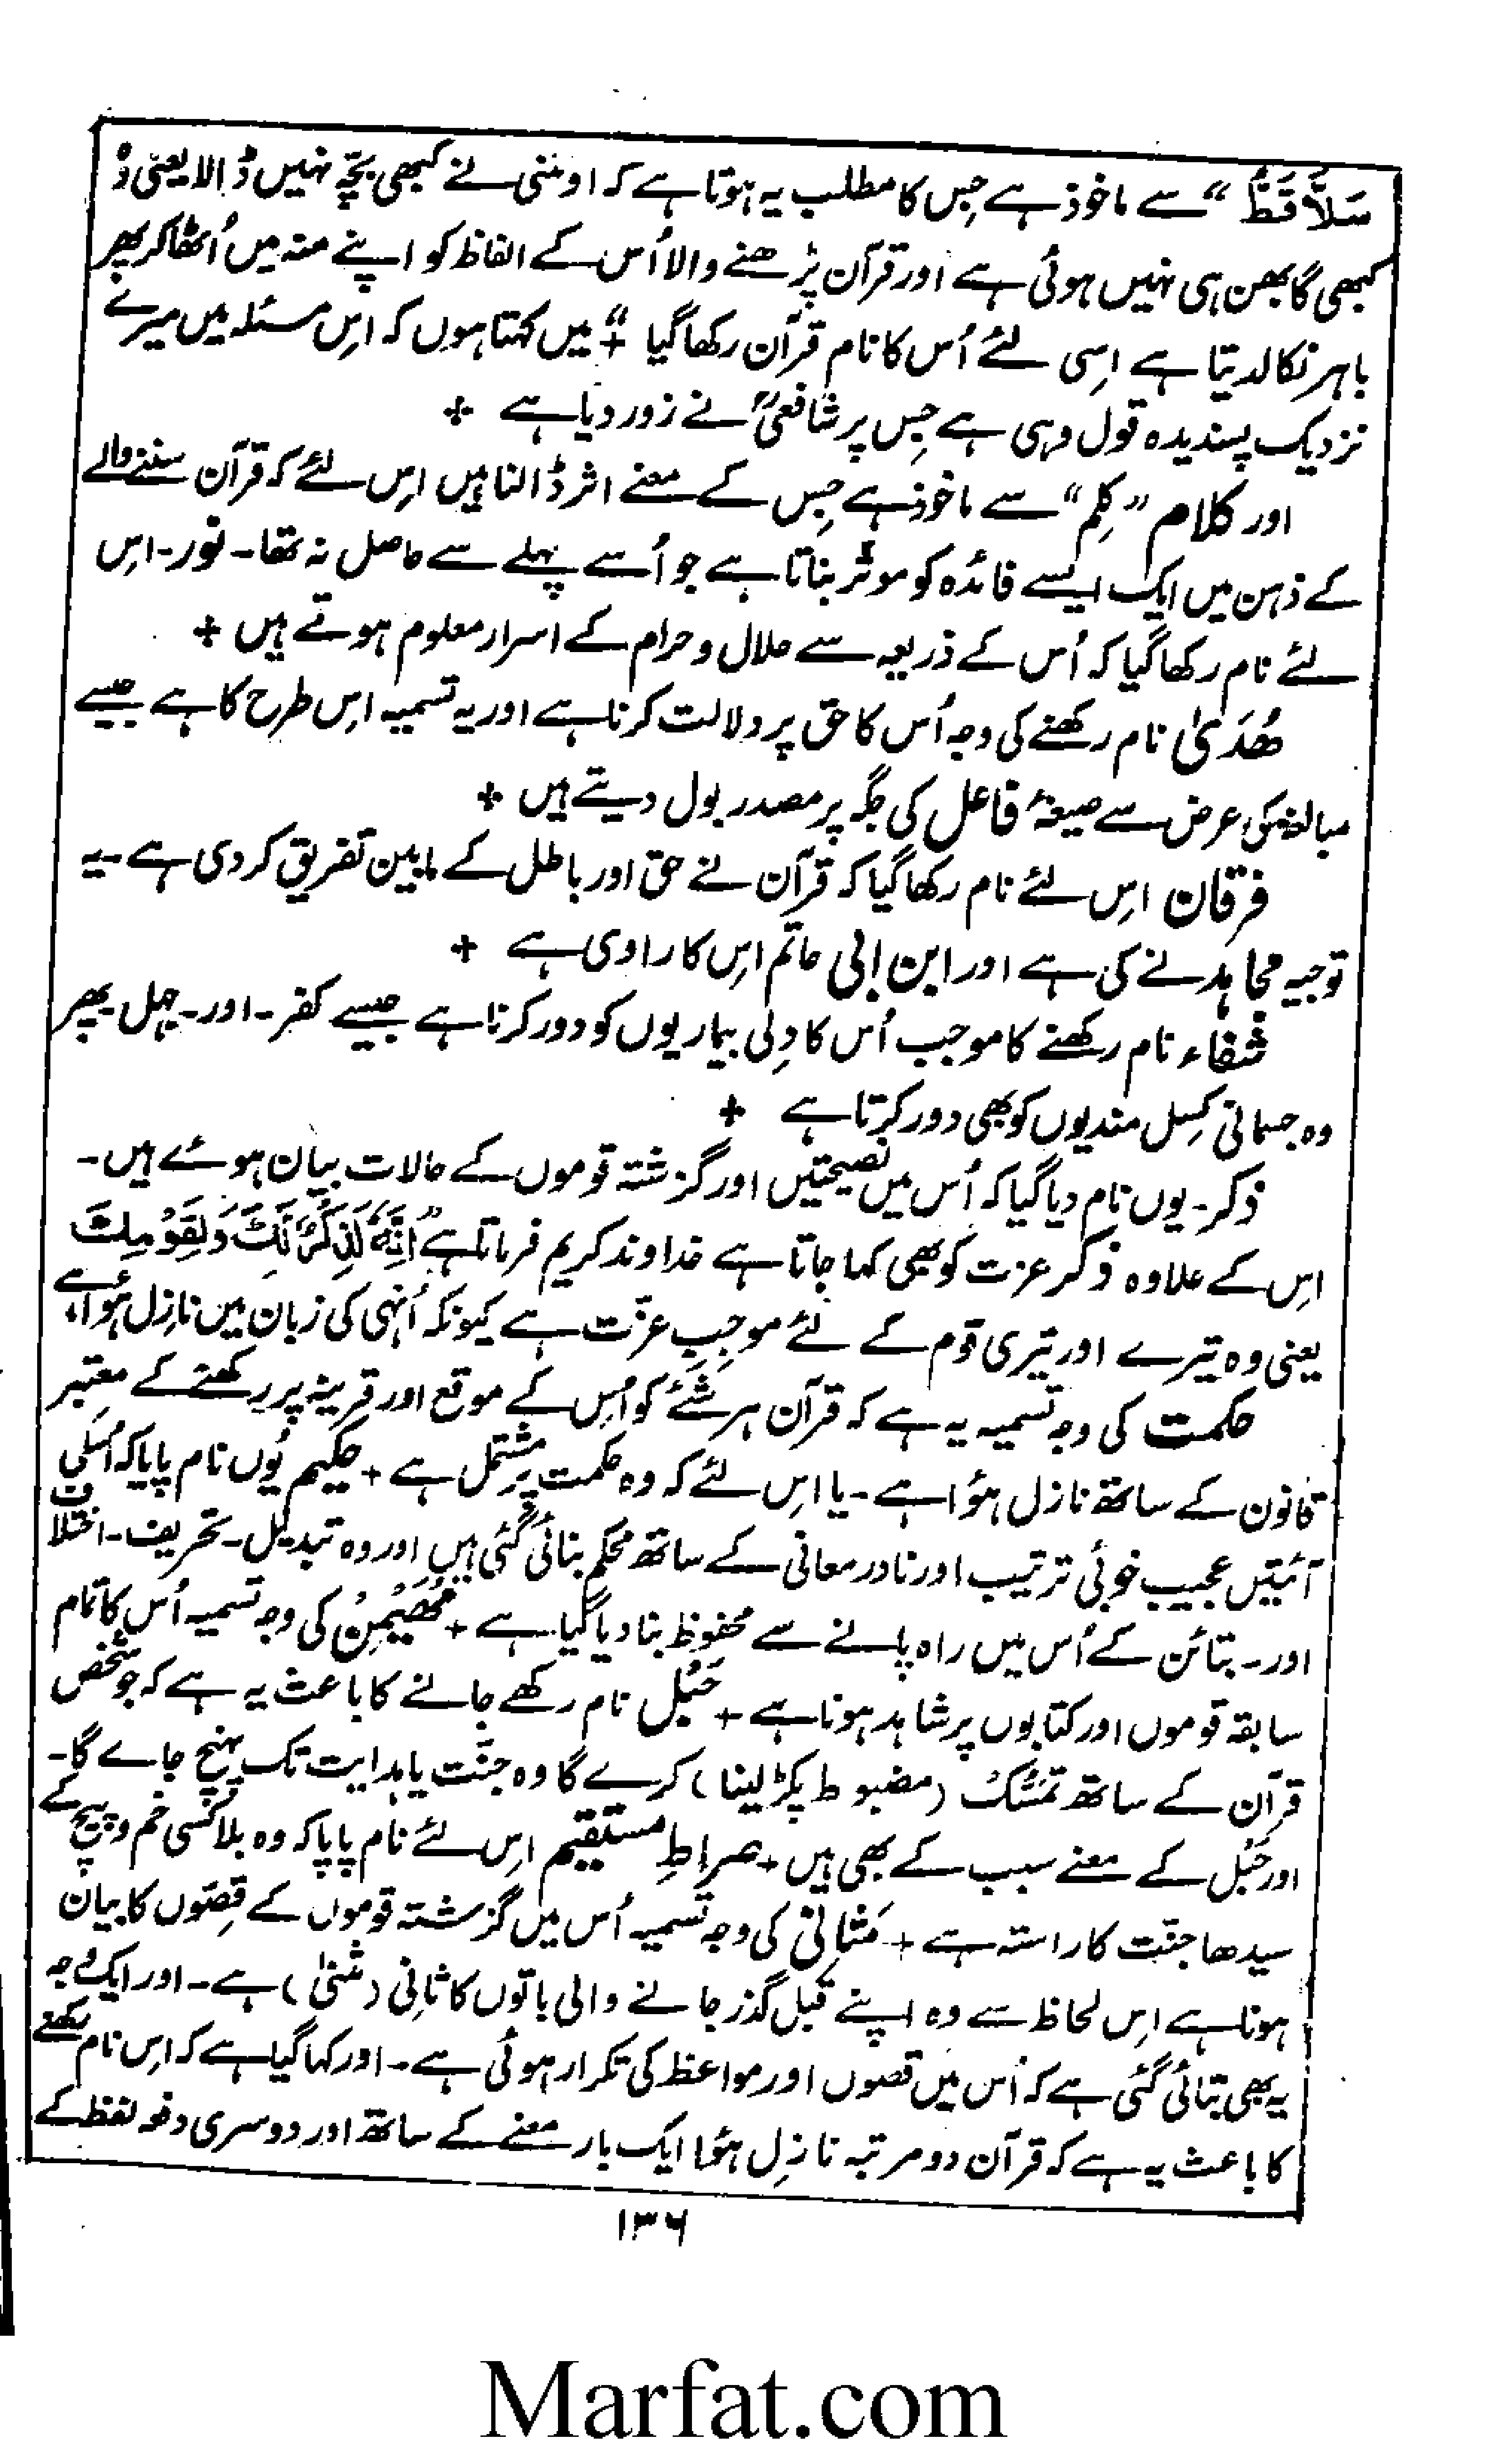 سَلاًّ قَطُّ “ سے ماخوذ ہے جِس کا مطلب یہ ہوتا ہے کہ اونٹنی نے کبھی بچّہ نہیں ڈالا یعنی وُہ
کبھی گابھن ہی نہیں ہوئی ہے اور قرآن پڑھنے والا اُس کے الفاظ کو اپنے منہ میں اُٹھا کر پھر
باہر نکالدیتا ہے اِسی لئے اُس کا نام قرآن رکھا گیا “ + میں کہتا ہوں کہ اِس مسئلہ میں میرے
نزدیک پسندیدہ قول وہی ہے جِس پر شافعیؒ نے زور دیا ہے +
اور کلام ” کِلِم “ سے ماخوذ ہے جِس کے معنے اثر ڈالنا ہیں اِس لئے کہ قرآن سننے والے
کے ذہن میں ایک ایسے فائدہ کو موثر بناتا ہے جو اُسے پہلے سے حاصل نہ تھا - نور - اِس
لئے نام رکھا گیا کہ اُس کے ذریعہ سے حلال و حرام کے اسرار معلوم ہوتے ہیں +
ھُدَیٰ نام رکھنے کی وجہ اُس کا حق پر دلالت کرنا ہے اور یہ تسمیہ اِس طرح کا ہے جیسے
مبالغہ کی غرض سے صیغۂ فاعل کی جگہ پر مصدر بول دیتے ہیں +
فرقان اِس لئے نام رکھا گیا کہ قرآن نے حق اور باطل کے مابین تفریق کر دی ہے - یہ
توجیہ مجاہد نے کی ہے اور ابن ابی حاتم اِس کا راوی ہے +
شفاء نام رکھنے کا موجب اُس کا دِلی بیماریوں کو دور کرنا ہے جیسے کفر - اور - جہل پھر
وہ جسمانی کِسل مندیوں کو بھی دور کرتا ہے +
ذکر - یوں نام دیا گیا کہ اُس میں نصیحتیں اور گزشتہ قوموں کے حالات بیان ہوئے ہیں -
اِس کے علاوہ ذکر عزت کو بھی کہا جاتا ہے خداوند کریم فرماتا ہے ” اِنَّهٗ لَذِكْرٌ لَّكَ وَلِقَوْمِكَ
یعنی وہ تیرے اور تیری قوم کے لئے موجِبِ عزّت ہے کیونکہ اُنہی کی زبان میں نازِل ہُوا ہے
حکمت کی وجہ تسمیہ یہ ہے کہ قرآن ہر شَے کو اُس کے موقع اور قرینہ پر رکھنے کے معتبر
قانون کے ساتھ نازل ہؤا ہے - یا اِس لئے کہ وہ حکمت پر مشتمل ہے + حکیم یُوں نام پایا کہ اُسکی
آئیتیں عجیب خوئی ترتیب اور نادر معانی کے ساتھ محکم بنائی گئی ہیں اور وہ تبدیل - تحریف - اختلاف
اور - تبائن کے اُس میں راہ پانے سے محفوظ بنا دیا گیا ہے + مُھَیْمِنْ کی وجہ تسمیہ اُس کا تمام
سابقہ قوموں اور کتابوں پر شاہد ہونا ہے + حَبْل نام رکھے جانے کا باعث یہ ہے کہ جو شخص
قرآن کے ساتھ تَمَسُّک (مضبوط پکڑ لینا) کرے گا وہ جنّت یا ہدایت تک پہنچ جاے گا -
اور حَبْل کے معنے سبب کے بھی ہیں + صِراطِ مستقیم اِس لئے نام پایا کہ وہ بلا کسی خم و پیچ کے
سیدھا جنّت کا راستہ ہے + مَثانی کی وجہ تسمیہ اُس میں گزشتہ قوموں کے قِصّوں کا بیان
ہونا ہے اِس لحاظ سے وہ اپنے قبل گذر جانے والی باتوں کا ثانی (مثنیٰ) ہے - اور ایک وجہ
یہ بھی بتائی گئی ہے کہ اُس میں قصوں اور مواعظ کی تکرار ہوئی ہے - اور کہا گیا ہے کہ اِس نام رکھنے
کا باعث یہ ہے کہ قرآن دو مرتبہ نازِل ہؤا ایک بار معنے کے ساتھ اور دوسری دفعہ لفظ کے
۱۳۶
Marfat.com